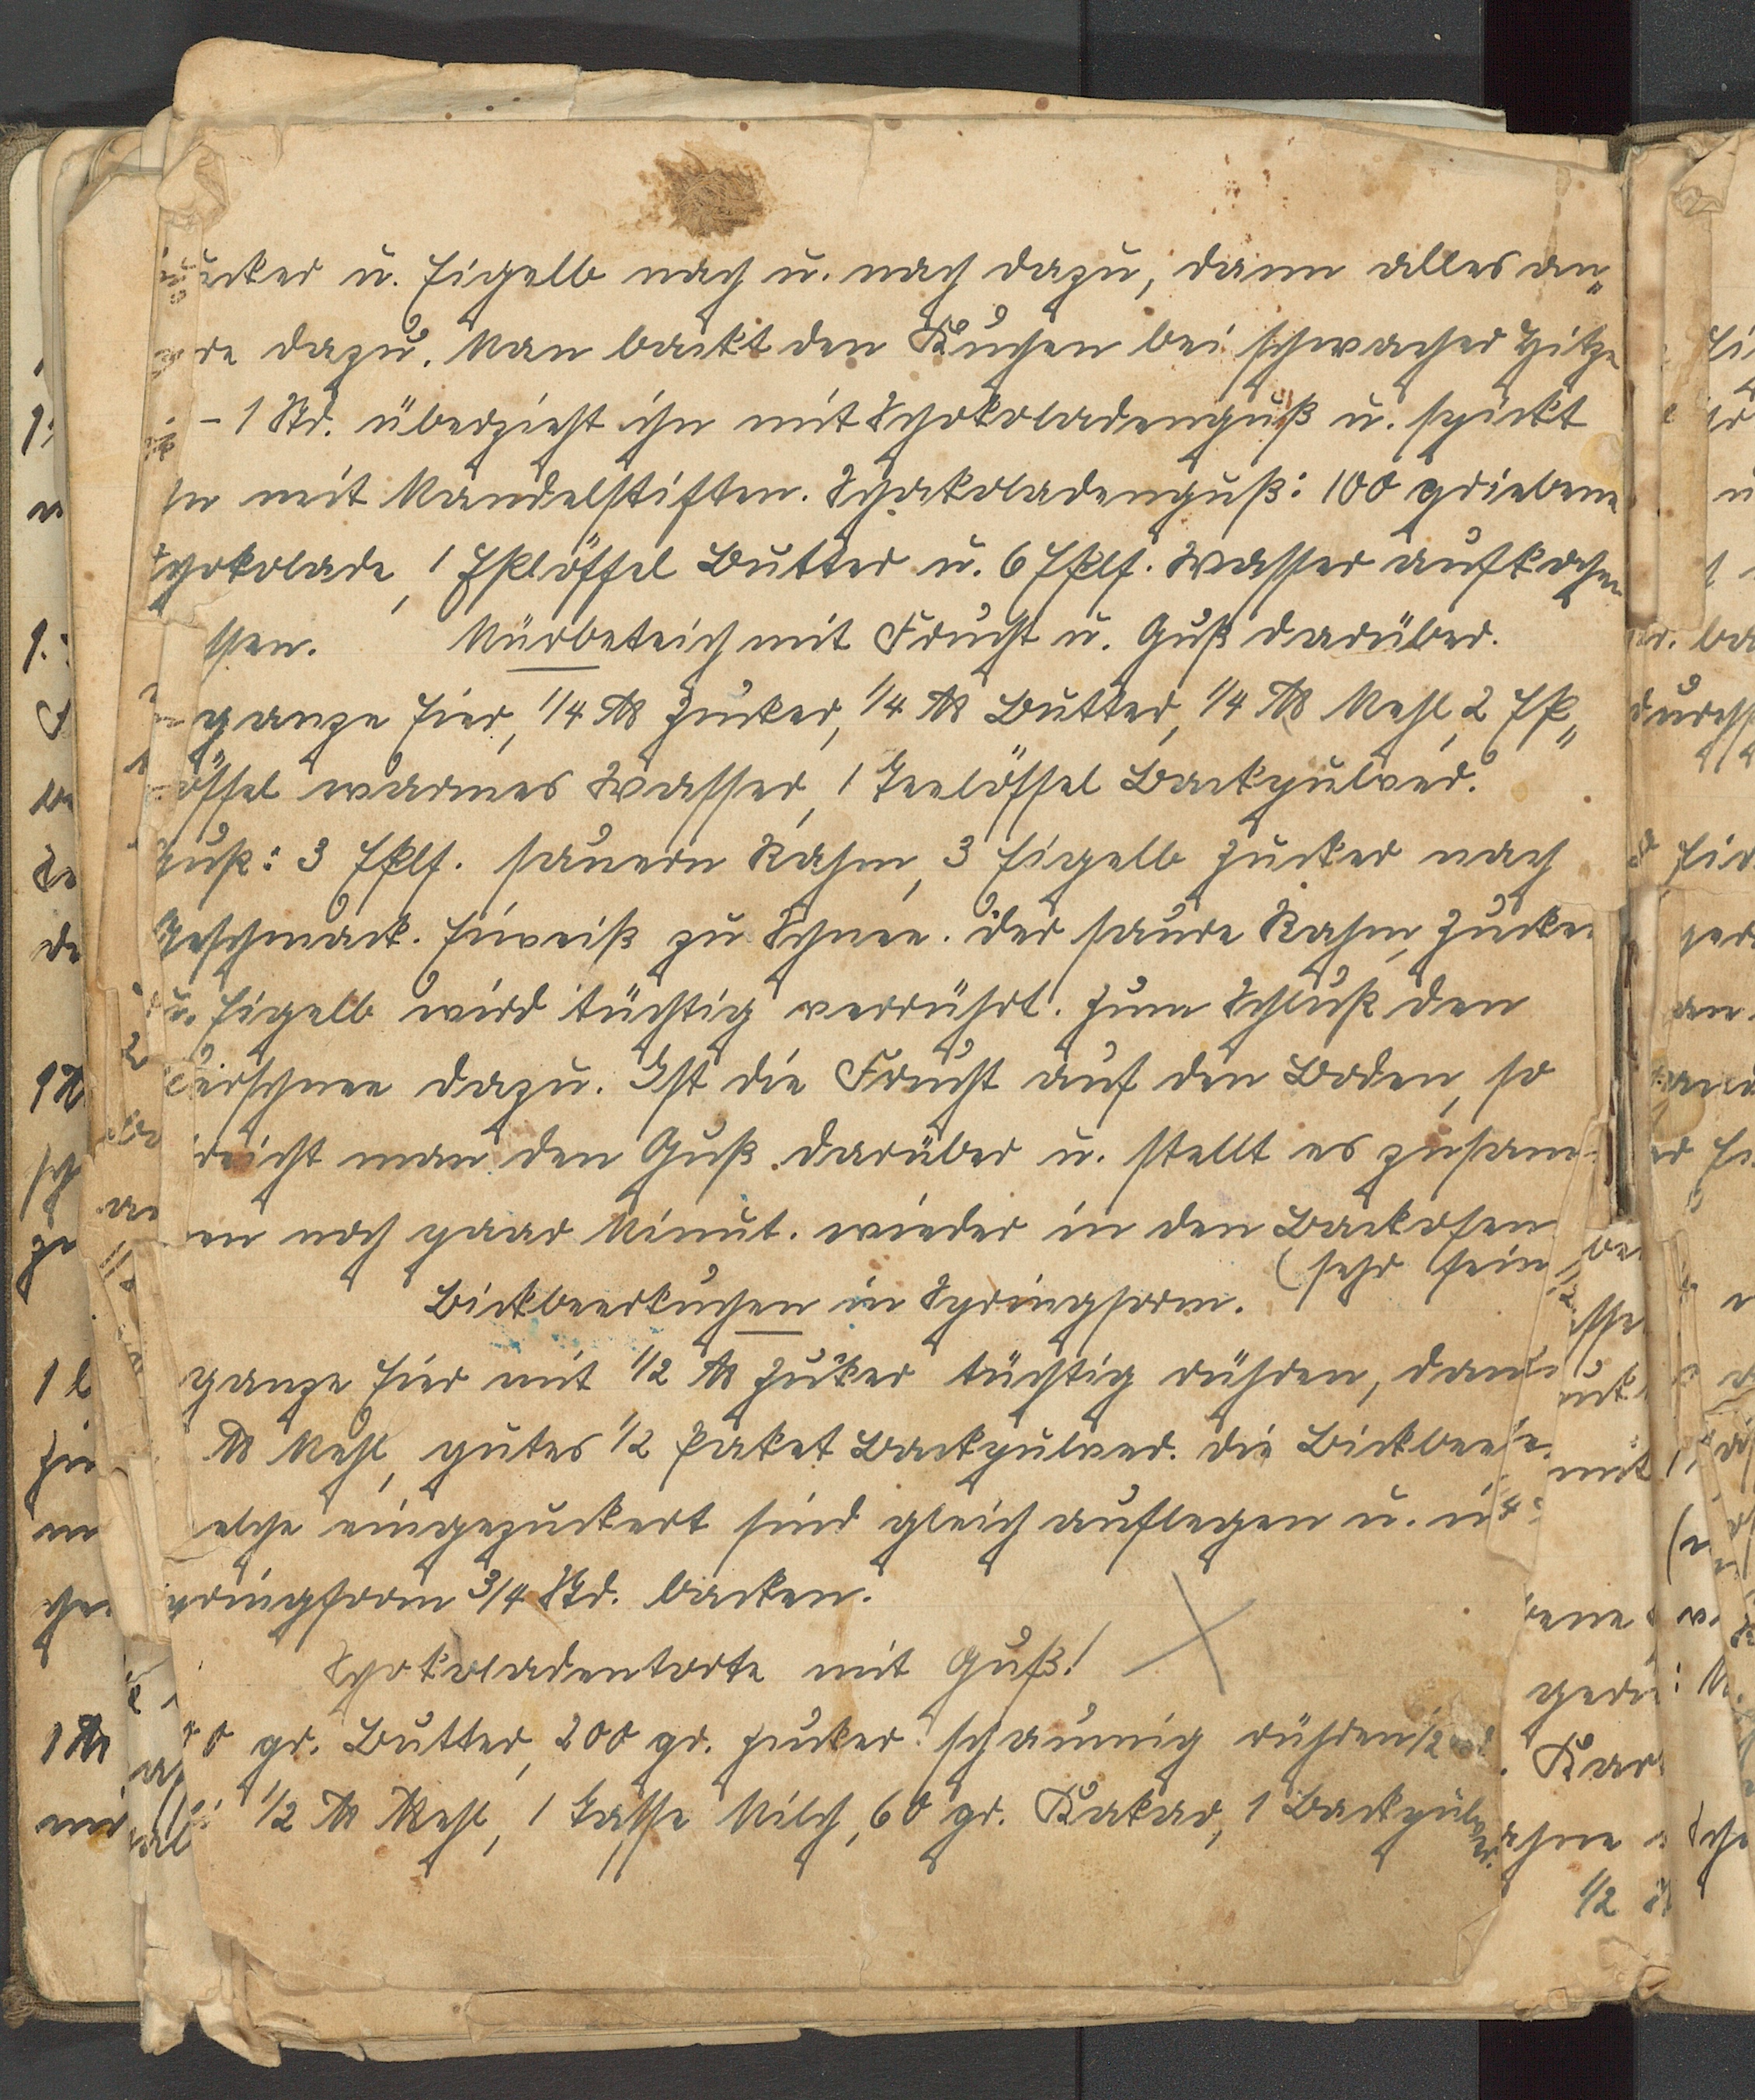 ucker u. Eigelb nach u. nach dazu, dann alles an„
re dazu. Man backt den Kuchen bei schwacher Hitze
– 1 Std. überzieht ihn mit Schokoladenguß u. spickt
hn mit Mandelstiften. Schokoladenguß: 100 griebene
chokolade, 1 Eßlöffel Butter u. 6 Eßlf. Wasser aufkochen
ssen. Mürbeteich mit Frucht u. Guß darüber.
ganze Eier, 1/4 ℔ Zucker, 1/4 ℔ Butter, 1/4 ℔ Mehl, 2 Eß„
öffel warmes Wasser, 1 Teelöffel Backpulver.
Guß: 3 Eßlf. sauern Rahm, 3 Eigelb Zucker nach
Geschmack. Eiweiß zu Schnee. Der saure Rahm, Zucker
u. Eigelb wird tüchtig verrührt. Zum Schluß den
Eierschnee dazu. Ist die Frucht auf den Boden, so
reicht man den Guß darüber u. stellt es zusam-
en noch paar Minut. wieder in den Backofen
(sehr fein
Bickbeerkuchen in Springform.
ganze Eier mit 1/2 ℔ Zucker tüchtig rühren, dann
℔ Mehl, gutes 1/2 Paket Backpulver. Die Bickbeere
elche eingezuckert sind gleich auflegen u. in
pringform 3/4 Std. backen.
Schokoladentorte mit Guß!
0 gr. Butter, 200 gr. Zucker schaumig rühren 1/2
1/2 ℔ Mehl, 1 Tasse Milch, 60 gr. Kakao, 1 Backpulver.